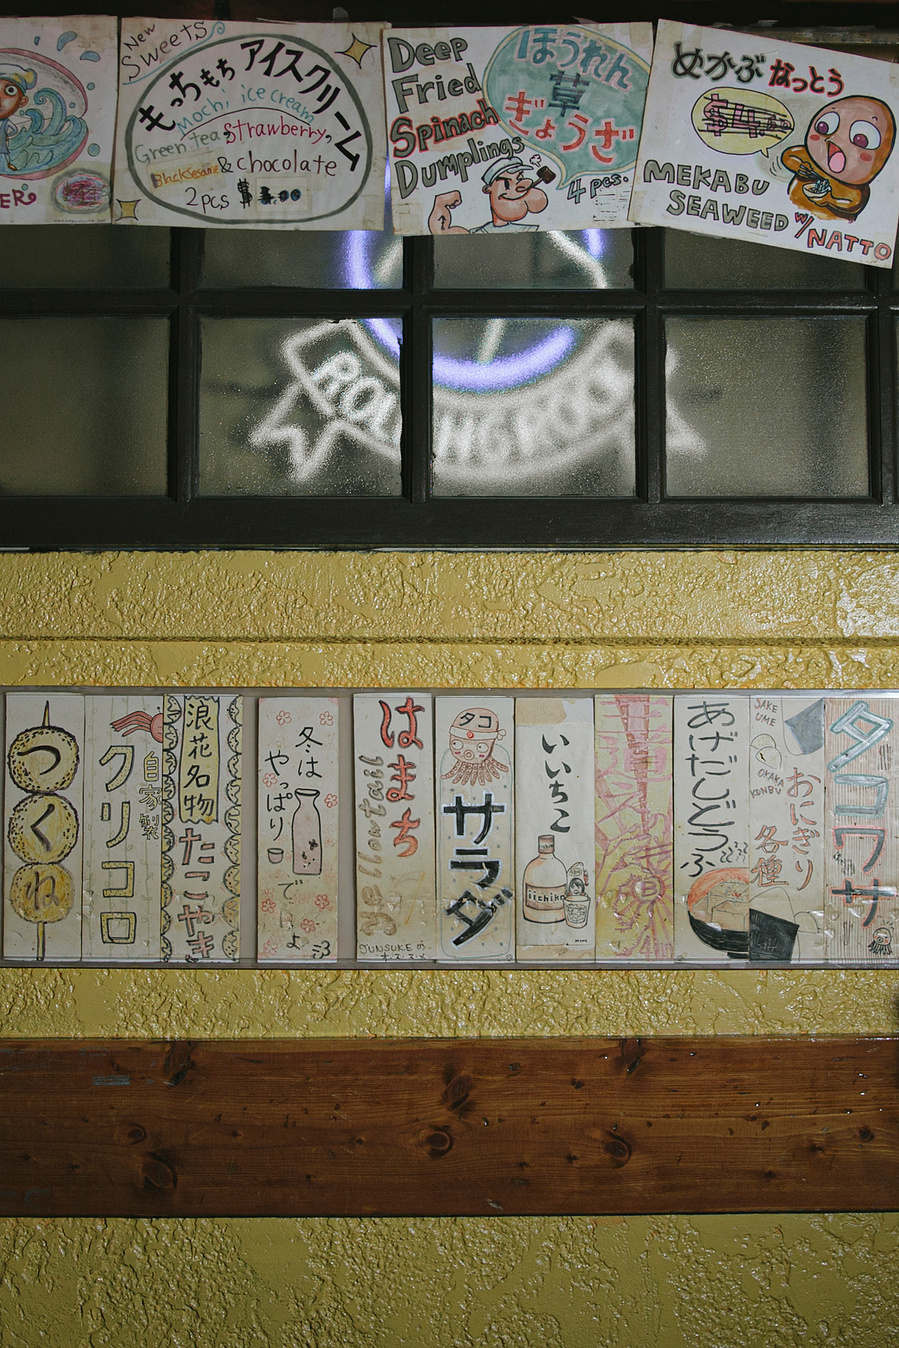 ER
New
Sweets
もっちもち アイスクリーム
Mochi ice cream
Green tea, Strawberry,
Black Sesame & chocolate
2 pcs
Deep
Fried
Spinach
Dumplings
ほうれん
草
ぎょうざ
4 pcs.
めかぶ なっとう
MEKABU
SEAWEED W/
NATTO
つくね
自家製
クリコロ
浪花名物
たこやき
冬は
やっぱり
はまち
yellowtail
JUNSUKE の
オススメ
タコ
サラダ
いいちこ
iichiko
あげだしどうふ
SAKE
UME
OKAKA
KONBU
おにぎり
各種
タコワサ